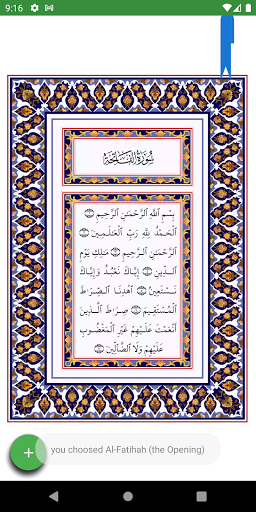 9:16
سُورَةُ الفَاتِحَةِ
بِسْمِ اللَّهِ الرَّحْمَٰنِ الرَّحِيمِ ١
الْحَمْدُ لِلَّهِ رَبِّ الْعَالَمِينَ ٢
الرَّحْمَٰنِ الرَّحِيمِ ٣ مَالِكِ يَوْمِ
الدِّينِ ٤ إِيَّاكَ نَعْبُدُ وَإِيَّاكَ
نَسْتَعِينُ ٥ اهْدِنَا الصِّرَاطَ
الْمُسْتَقِيمَ ٦ صِرَاطَ الَّذِينَ
أَنْعَمْتَ عَلَيْهِمْ غَيْرِ الْمَغْضُوبِ
عَلَيْهِمْ وَلَا الضَّالِّينَ ٧
+
you choosed Al-Fatihah (the Opening)